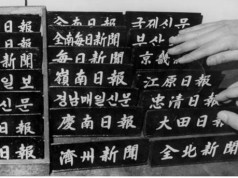 日報 全南日報 국제신문
日報 全南每日新聞 부산
新聞 每日新聞 京畿
일보 嶺南日報 江原日報
신문 경남매일신문 忠清日報
日報 慶南日報 大田日報
日報 濟州新聞 全北新聞